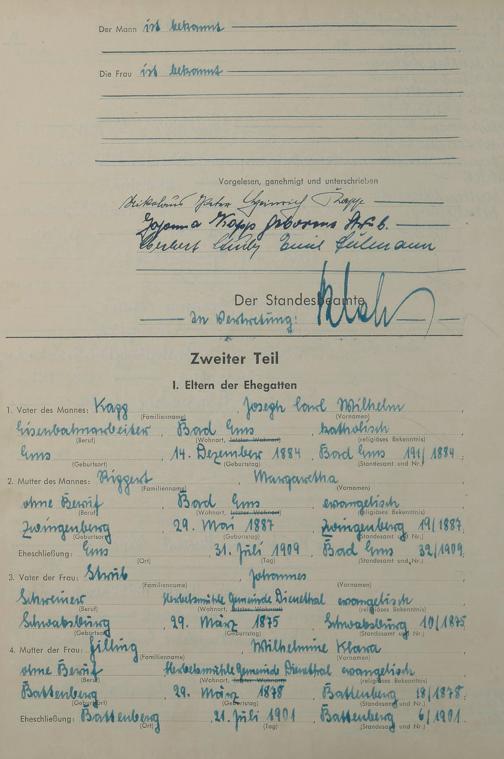 Der Mann ist bekannt
Die Frau ist bekannt
Vorgelesen, genehmigt und unterschrieben
Nikolaus Peter Heinrich Kapp
Johanna Kapp geborene Strib.
Herbert Emil
Der Standesbeamte
In Vertretung:
Zweiter Teil
I. Eltern der Ehegatten
1. Vater des Mannes: Kapp Joseph Carl Wilhelm
(Familienname) (Vornamen)
Eisenbahnarbeiter, Bad Ems katholisch
(Beruf) (Wohnort, letzter Wohnort) (religiöses Bekenntnis)
Ems 14. Dezember 1884, Bad Ems 191/1884.
(Geburtsort) (Geburtstag) (Standesamt und Nr.)
2. Mutter des Mannes: Riggert, Margaretha
(Familienname) (Vornamen)
ohne Beruf Bad Ems evangelisch
(Beruf) (Wohnort, letzter Wohnort) (religiöses Bekenntnis)
Zwingenberg 29. Mai 1887 Zwingenberg 19/1887.
(Geburtsort) (Geburtstag) (Standesamt und Nr.)
Eheschließung: Ems 31. Juli 1909, Bad Ems 32/1909.
(Ort) (Tag) (Standesamt und Nr.)
3. Vater der Frau: Strib Johannes
(Familienname) (Vornamen)
Schreiner Gemeinde Dienethal evangelisch
(Beruf) (Wohnort, letzter Wohnort) (religiöses Bekenntnis)
Schwabsburg 29. März 1875 Schwabsburg 10/1875
(Geburtsort) (Geburtstag) (Standesamt und Nr.)
4. Mutter der Frau: Wilhelmine Klara
(Familienname) (Vornamen)
ohne Beruf Gemeinde Dienethal evangelisch
(Beruf) (Wohnort, letzter Wohnort) (religiöses Bekenntnis)
Battenberg 29. März 1878 Battenberg 18/1878.
(Geburtsort) (Geburtstag) (Standesamt und Nr.)
Eheschließung: Battenberg 21. Juli 1901 Battenberg 6/1901.
(Ort) (Tag) (Standesamt und Nr.)